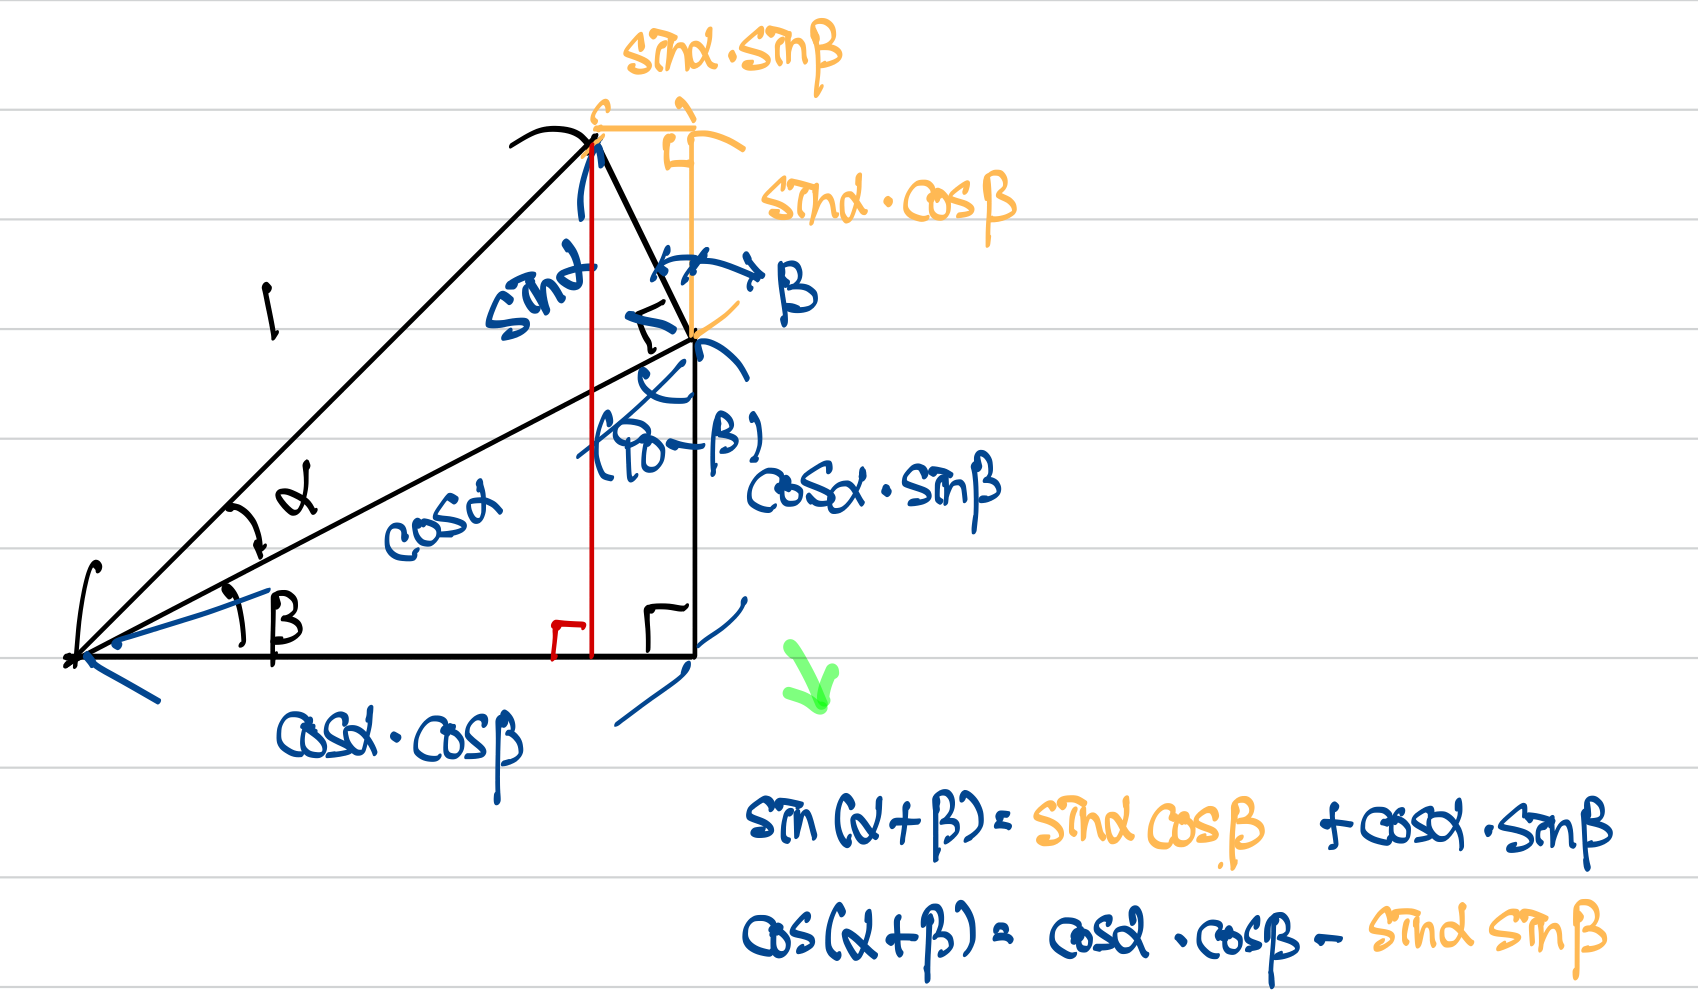 sinα·sinβ
sinα·cosβ
β
1
sinα
α
(90-β)
cosα
cosα·sinβ
β
cosα·cosβ
sin(α+β)= sinα cosβ +cosα·sinβ
cos(α+β)= cosα·cosβ- sinα sinβ